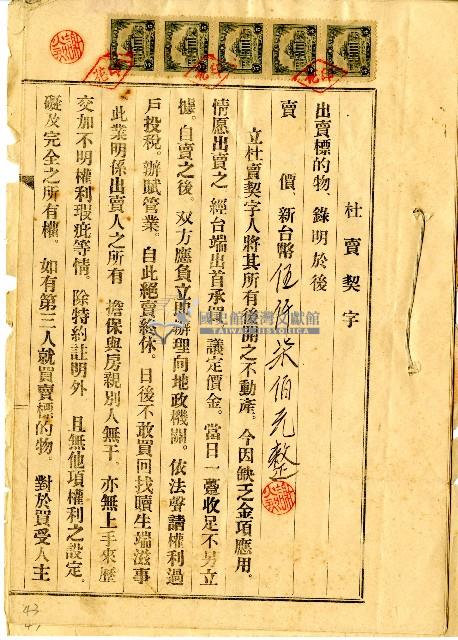 杜賣契字
出賣標的物、錄明於後
賣 價、新台幣伍仟柒伯元整
立杜賣契字人將其所有後開之不動產。今因缺乏金項應用。
情愿出賣之 經台端出首承買 議定價金。當日一蹙收足不另立
據。自賣之後。双方應負立即辦理向地政機關。依法聲請權利過
戶投稅。辦賦管業。自此絕賣終休、日後不敢買回找贖生端滋事
此業明係出賣人之所有 擔保與房親別人無干、亦無上手來歷
交加不明權利瑕疵等情。除特約註明外 且無他項權利之設定
礙及完全之所有權。如有第三人就買賣標的物、對於買受人主
國史館臺灣文獻館
TAIWAN HISTORICA
43